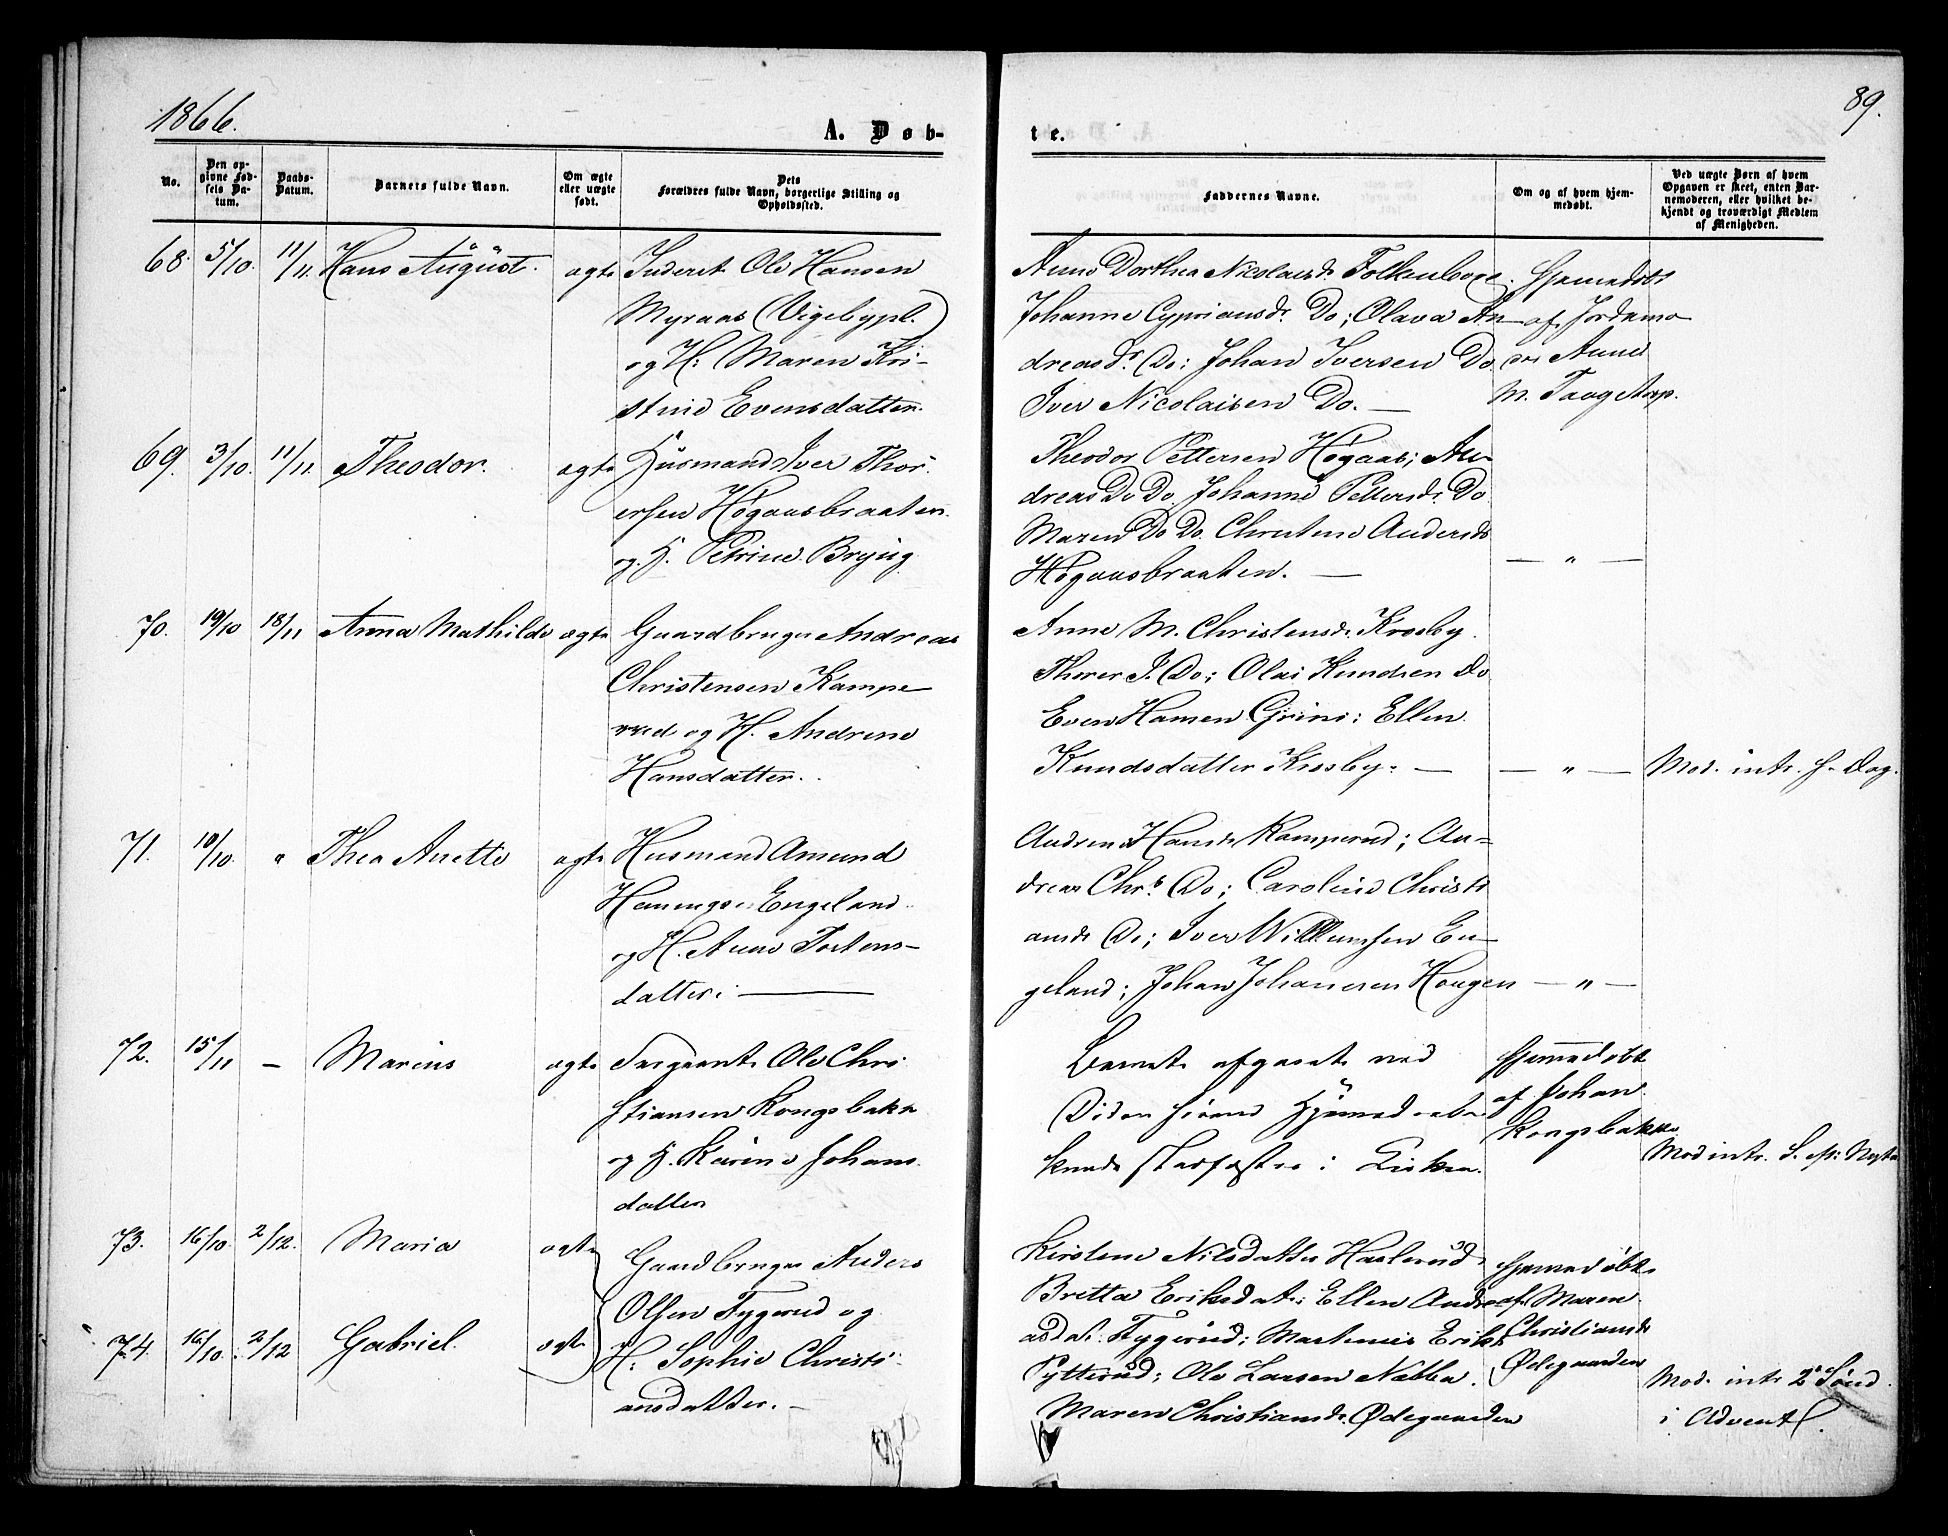 1866.
89.
A. Døb-
te.
No.
Den op-
givne Fød-
sels Da-
tum.
Daabs-
Datum.
Barnets fulde Navn.
Om ægte
eller uægte
født.
Dets
Forældres fulde Navn, borgerlige Stilling og
Opholdssted.
Faddernes Navne.
Om og af hvem hjem-
medøbt.
Ved uægte Børn af hvem
Opgaven er skeet, enten Bar-
nemoderen, eller hvilket be-
kjendt og troværdigt Medlem
af Menigheden.
68. 5/10. 11/11. Hans August. ægte Inderst Ole Hansen
Myraas (Vigebypl.)
og H: Maren Kri-
stine Evensdatter.
Anne Dorthea Nicolaisd. Folkenborg;
Johanne Cypriansdr. Do; Olava An-
dreasdr. Do; Johan Iversen Do
Iver Nicolaisen Do. —
Hjemedøbt
af Jordemo
der Anne
M. Taugetorp.
69. 3/10. 11/11. Theodor. ægte Husmand Iver Thor-
ersen Høgaasbraaten
og H. Petrine
Theodor Pettersen Høgaas; An-
dreas Do Do, Johanne Pettersd. Do
Maren Do Do. Christine Andersd.
Høgaasbraaten. —
— " —
70. 19/10 18/11 Anna Mathilde ægte Gaardbruger Andreas
Christensen Kampe
rud og H. Andrine
Hansdatter.
Anne M. Christensd. Krosby.
Thorer J. Do; Olai Knudsen Do
Even Hansen Grini; Ellen
Knudsdatter Krosby. —
— " —
Mod. intr. s. Dag.
71. 10/10. " Thea Anette ægte Husmand Amund
Henningsen Engeland
og H. Anne Tostens-
datter: —
Andrine Hansd. Kamperud; An-
dreas Chr.s Do; Caroline Christi
ansd. Do; Iver Willumsen En-
geland; Johan Johannesen Hougen
— " —
72. 15/11 — Marius ægte Sergeant Ole Chri
stiansen Kongsbakke
og H. Karine Johans
datter
Barnet afgaaet ved
Døden førend Hjemedaaben
kunde stadfæstes i Kirken.
Hjemmedøbt
af Johan
Kongsbakke
Mod intr. S. eft: Nytaar
73. 16/10. 2/12. Maria ægte
Gaardbruger Anders
Olsen Tygerud og
H: Sophie Christi-
ansdatter. —
74. 16/10. 2/12 Gabriel. ægte
Kirstine Nilsdatter Haslerud
Britta Eriksdat; Ellen Andre
asdat. Tygerud; Martinus Eriks.
Pytterud; Ole Larsen Næbba.
Maren Christiansd. Ødegaarden
Hjemmedøbte
af Maren
Christiansd.
Ødegaarden
Mod. intr 2den Sønd.
i Advent.